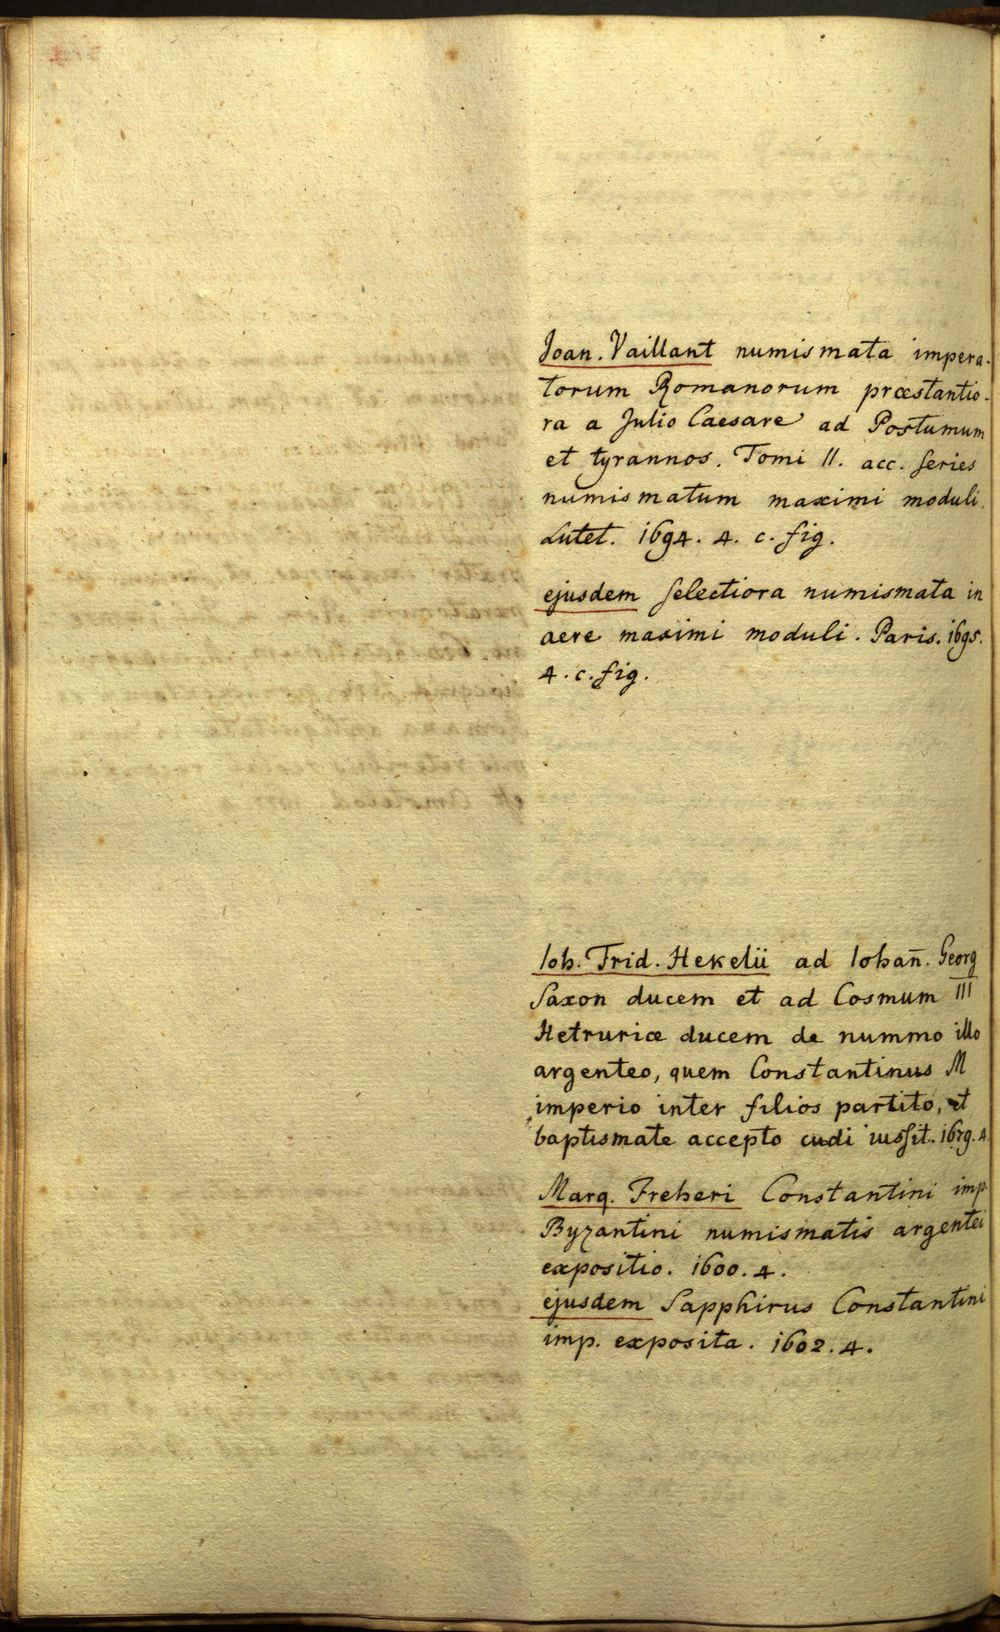 Joan. Vaillant numismata impera-
torum Romanorum præstantio-
ra a Julio Caesare ad Postumum
et tyrannos. Tomi II. acc. series
numismatum maximi moduli.
Lutet. 1694. 4. c. fig.
ejusdem selectiora numismata in
aere maximi moduli. Paris. 1695.
4. c. fig.
Ioh. Frid. Hekelii ad Iohan̄. Georg
Saxon ducem et ad Cosmum III
Hetruriæ ducem de nummo illo
argenteo, quem Constantinus M
imperio inter filios partito, et
baptismate accepto cudi iussit. 1679. 4
Marq. Freheri Constantini imp.
Byzantini numismatis argentei
expositio. 1600. 4.
ejusdem Sapphirus Constantini
imp. exposita. 1602. 4.